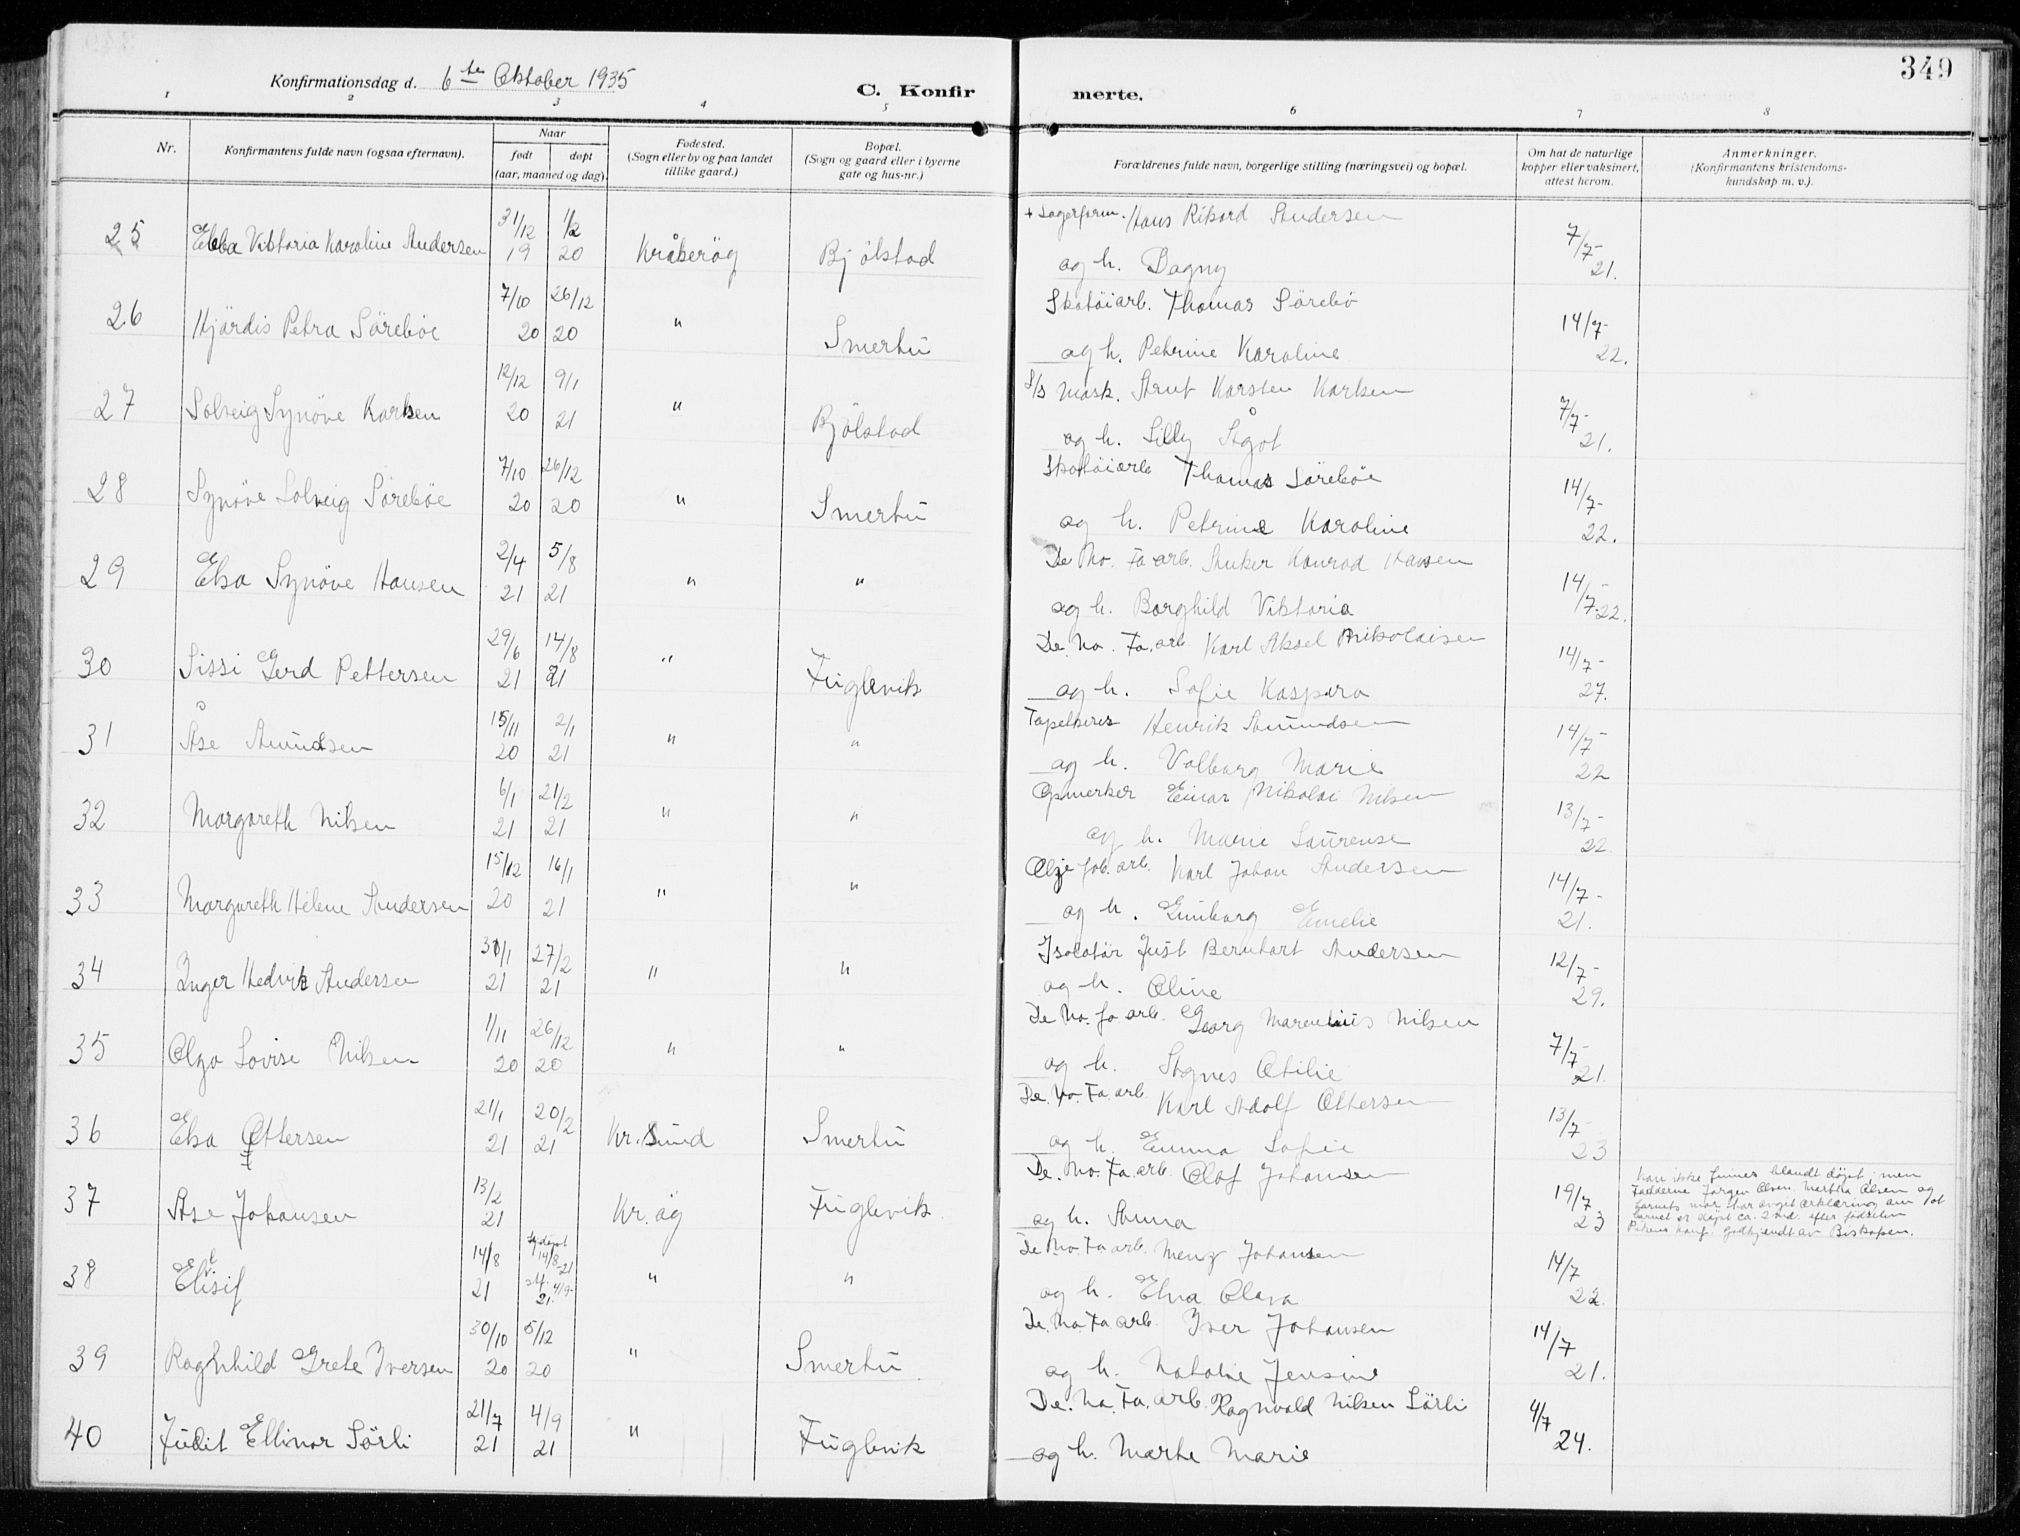 349
Konfirmationsdag d. 6te Oktober 1935
C. Konfirmerte.
1 2 3 4 5 6 7 8
Nr. | Konfirmantens fulde navn (ogsaa efternavn). | Naar født døpt (aar, maaned og dag) | Fødested. (Sogn eller by og paa landet tillike gaard.) | Bopæl. (Sogn og gaard eller i byerne gate og hus-nr.) | Forældrenes fulde navn, borgerlige stilling (næringsvei) og bopæl. | Om hat de naturlige kopper eller vaksinert, attest herom. | Anmerkninger. (Konfirmantens kristendoms-kundskap m. v.).
25 Ebba Viktoria Karoline Andersen 31/12 19 1/2 20 Kråkerøy Bjölstad + Lagerform. Hans Rikard Andersen
og h. Dagny 7/7- 21.
26 Hjärdis Petra Söreböe 7/10 20 26/12 20 " Smertu Skotöiarb. Thomas Sörebö
og h. Petrine Karoline 14/7- 22.
27 Solveig Synöve Karlsen 12/12 20 9/1 21 " Bjölstad S/s Mask. Arnt Karsten Karlsen
og h. Silly Ågot 7/7- 21.
28 Synöve Solveig Söreböe 7/10 20 26/12 20 " Smertu Skotöiarb Thomas Sörebö
og h. Petrine Karoline 14/7- 22.
29 Elsa Synöve Hansen 2/4 21 5/8 21 " " De No. Fa. arb. Anker Konrad Hansen
og h. Borghild Viktoria 14/7- 22.
30 Sissi Gerd Pettersen 29/6 21 14/8 21 " Fuglevik De. No. Fa. arb. Karl Aksel Nikolaisen
og h. Sofie Kaspara 14/7- 27.
31 Åse Amundsen 15/11 20 2/1 21 " " Tapetserer Henrik Amundsen
og h. Valborg Marie 14/7- 22
32 Margareth Nilsen 6/1 21 21/2 21 " " Opmerker Einar Nikolai Nilsen
og h. Marie Laurense 13/7- 22.
33 Margareth Helene Andersen 15/12 20 16/1 21 " " Olje fab. arb. Karl Johan Andersen
og h. Gunborg Emelie 14/7- 21.
34 Inger Hedvik Andersen 30/1 21 27/2 21 " " Isolatör Just Bernhart Andersen
og h. Oline 12/7- 29.
35 Olga Lovise Nilsen 1/11 20 26/12 20 " " De No. fa arb. Georg Marenlius Nilsen
og h. Agnes Otilie 7/7- 21.
36 Elsa Ottersen 21/1 21 20/2 21 Kr.Sund Smertu De. No. Fa. arb. Karl Adolf Ottersen
og h. Emma Sofie 13/7- 23
37 Ase Johansen 13/2 21 Kr.øy Fuglevik De. No. Fa. arb. Olaf Johansen
og h. Anna 19/7 23 kan ikke finnes blandt døpt, men
Fadderne Jørgen Olsen, Martha Olsen og
barnets mor har avgit erklæring om at
barnet er døpt ca. 2 md. efter fødselen
Pikens konf. godkjendt av Biskopen.
38 Elisif 14/8 21 14/8-21 4/9-21. " " De No. Fa arb. Menz Johansen
og h. Elna Clara 14/7 22.
39 Raghhild Grete Iversen 30/10 20 5/12 20 " Smertu De. No. Fa arb. Iver Johansen
og h. Natalie Jensine 14/7 21.
40 Judit Ellinor Sörli 21/7 21 4/9 21 " Fuglevik De. No. Fa. arb. Ragnvald Nilsen Sörli
og h. Marte Marie 4/7 24.